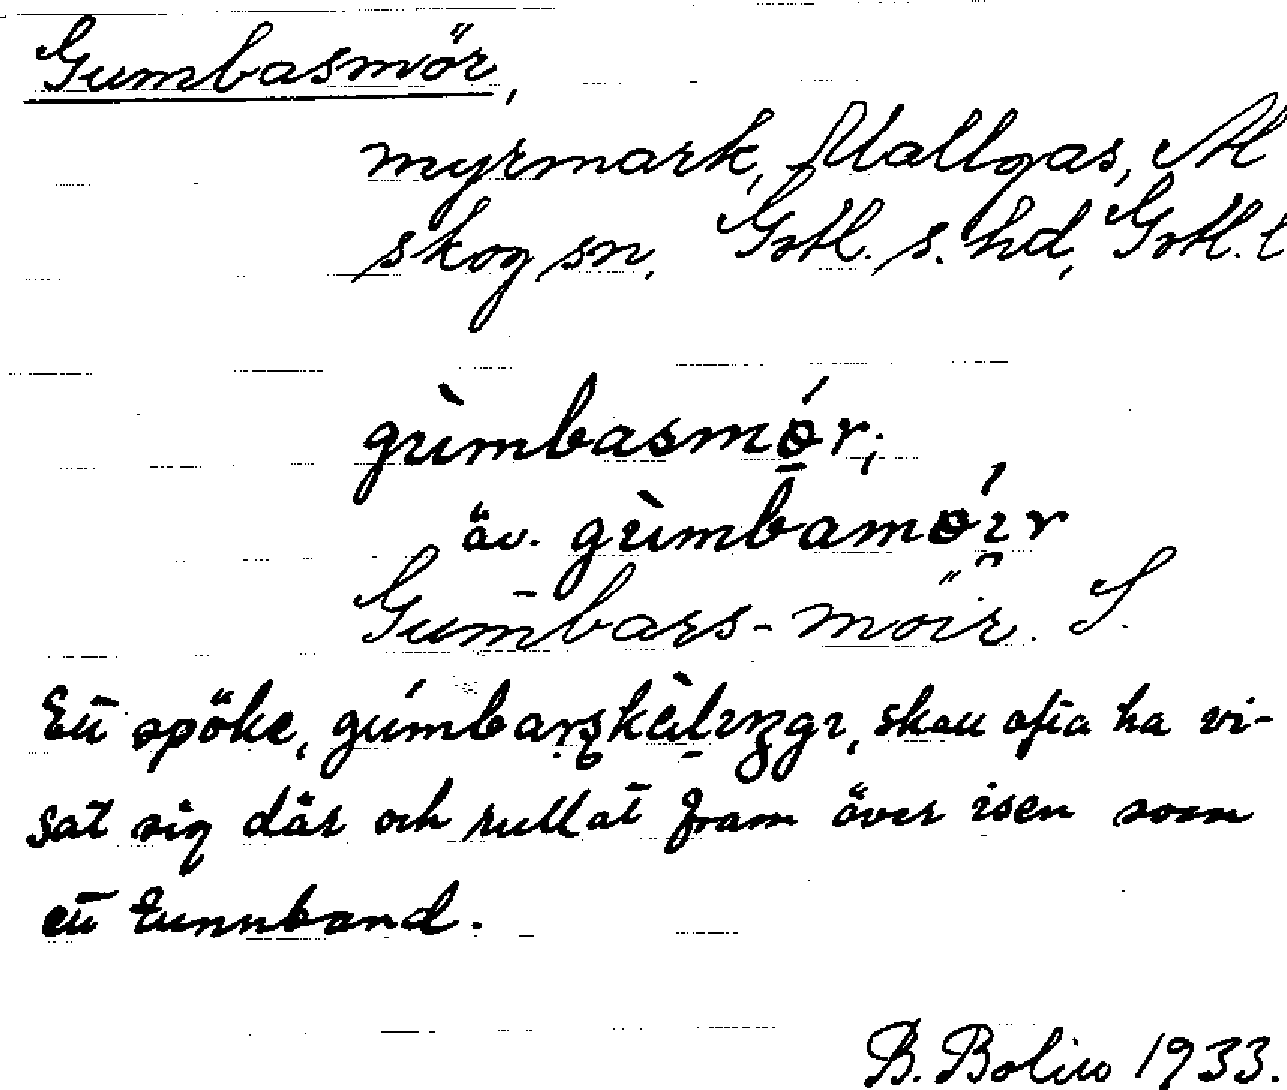 Gumbasmör,
myrmark, Mallgas, Al
skog sn, Gotl. s. hd, Gotl. l
gùmbasmǿr;
äv. gùmbamøír
Gumbars-moir. S.
Ett spöke, gúmbarskèlıŋgı, skall ofta ha vi-
sat sig där och rullat fram över isen som
ett tunnband.
B. Bolin 1933.